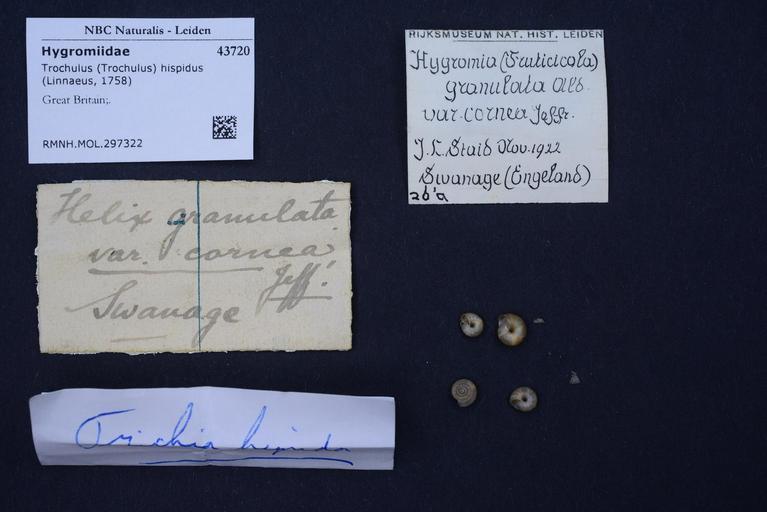 NBC Naturalis - Leiden
Hygromiidae 43720
Trochulus (Trochulus) hispidus
(Linnaeus, 1758)
Great Britain;.
RMNH.MOL.297322
RIJKSMUSEUM NAT. HIST. LEIDEN
Hygromia (Fruticicola)
granulata Alb.
var. cornea Jeffr.
J.L. Staid Nov. 1922
Swanage (Engeland)
26'a
Helix granulata
var. cornea
Jeff.
Swanage
Trichia hispida